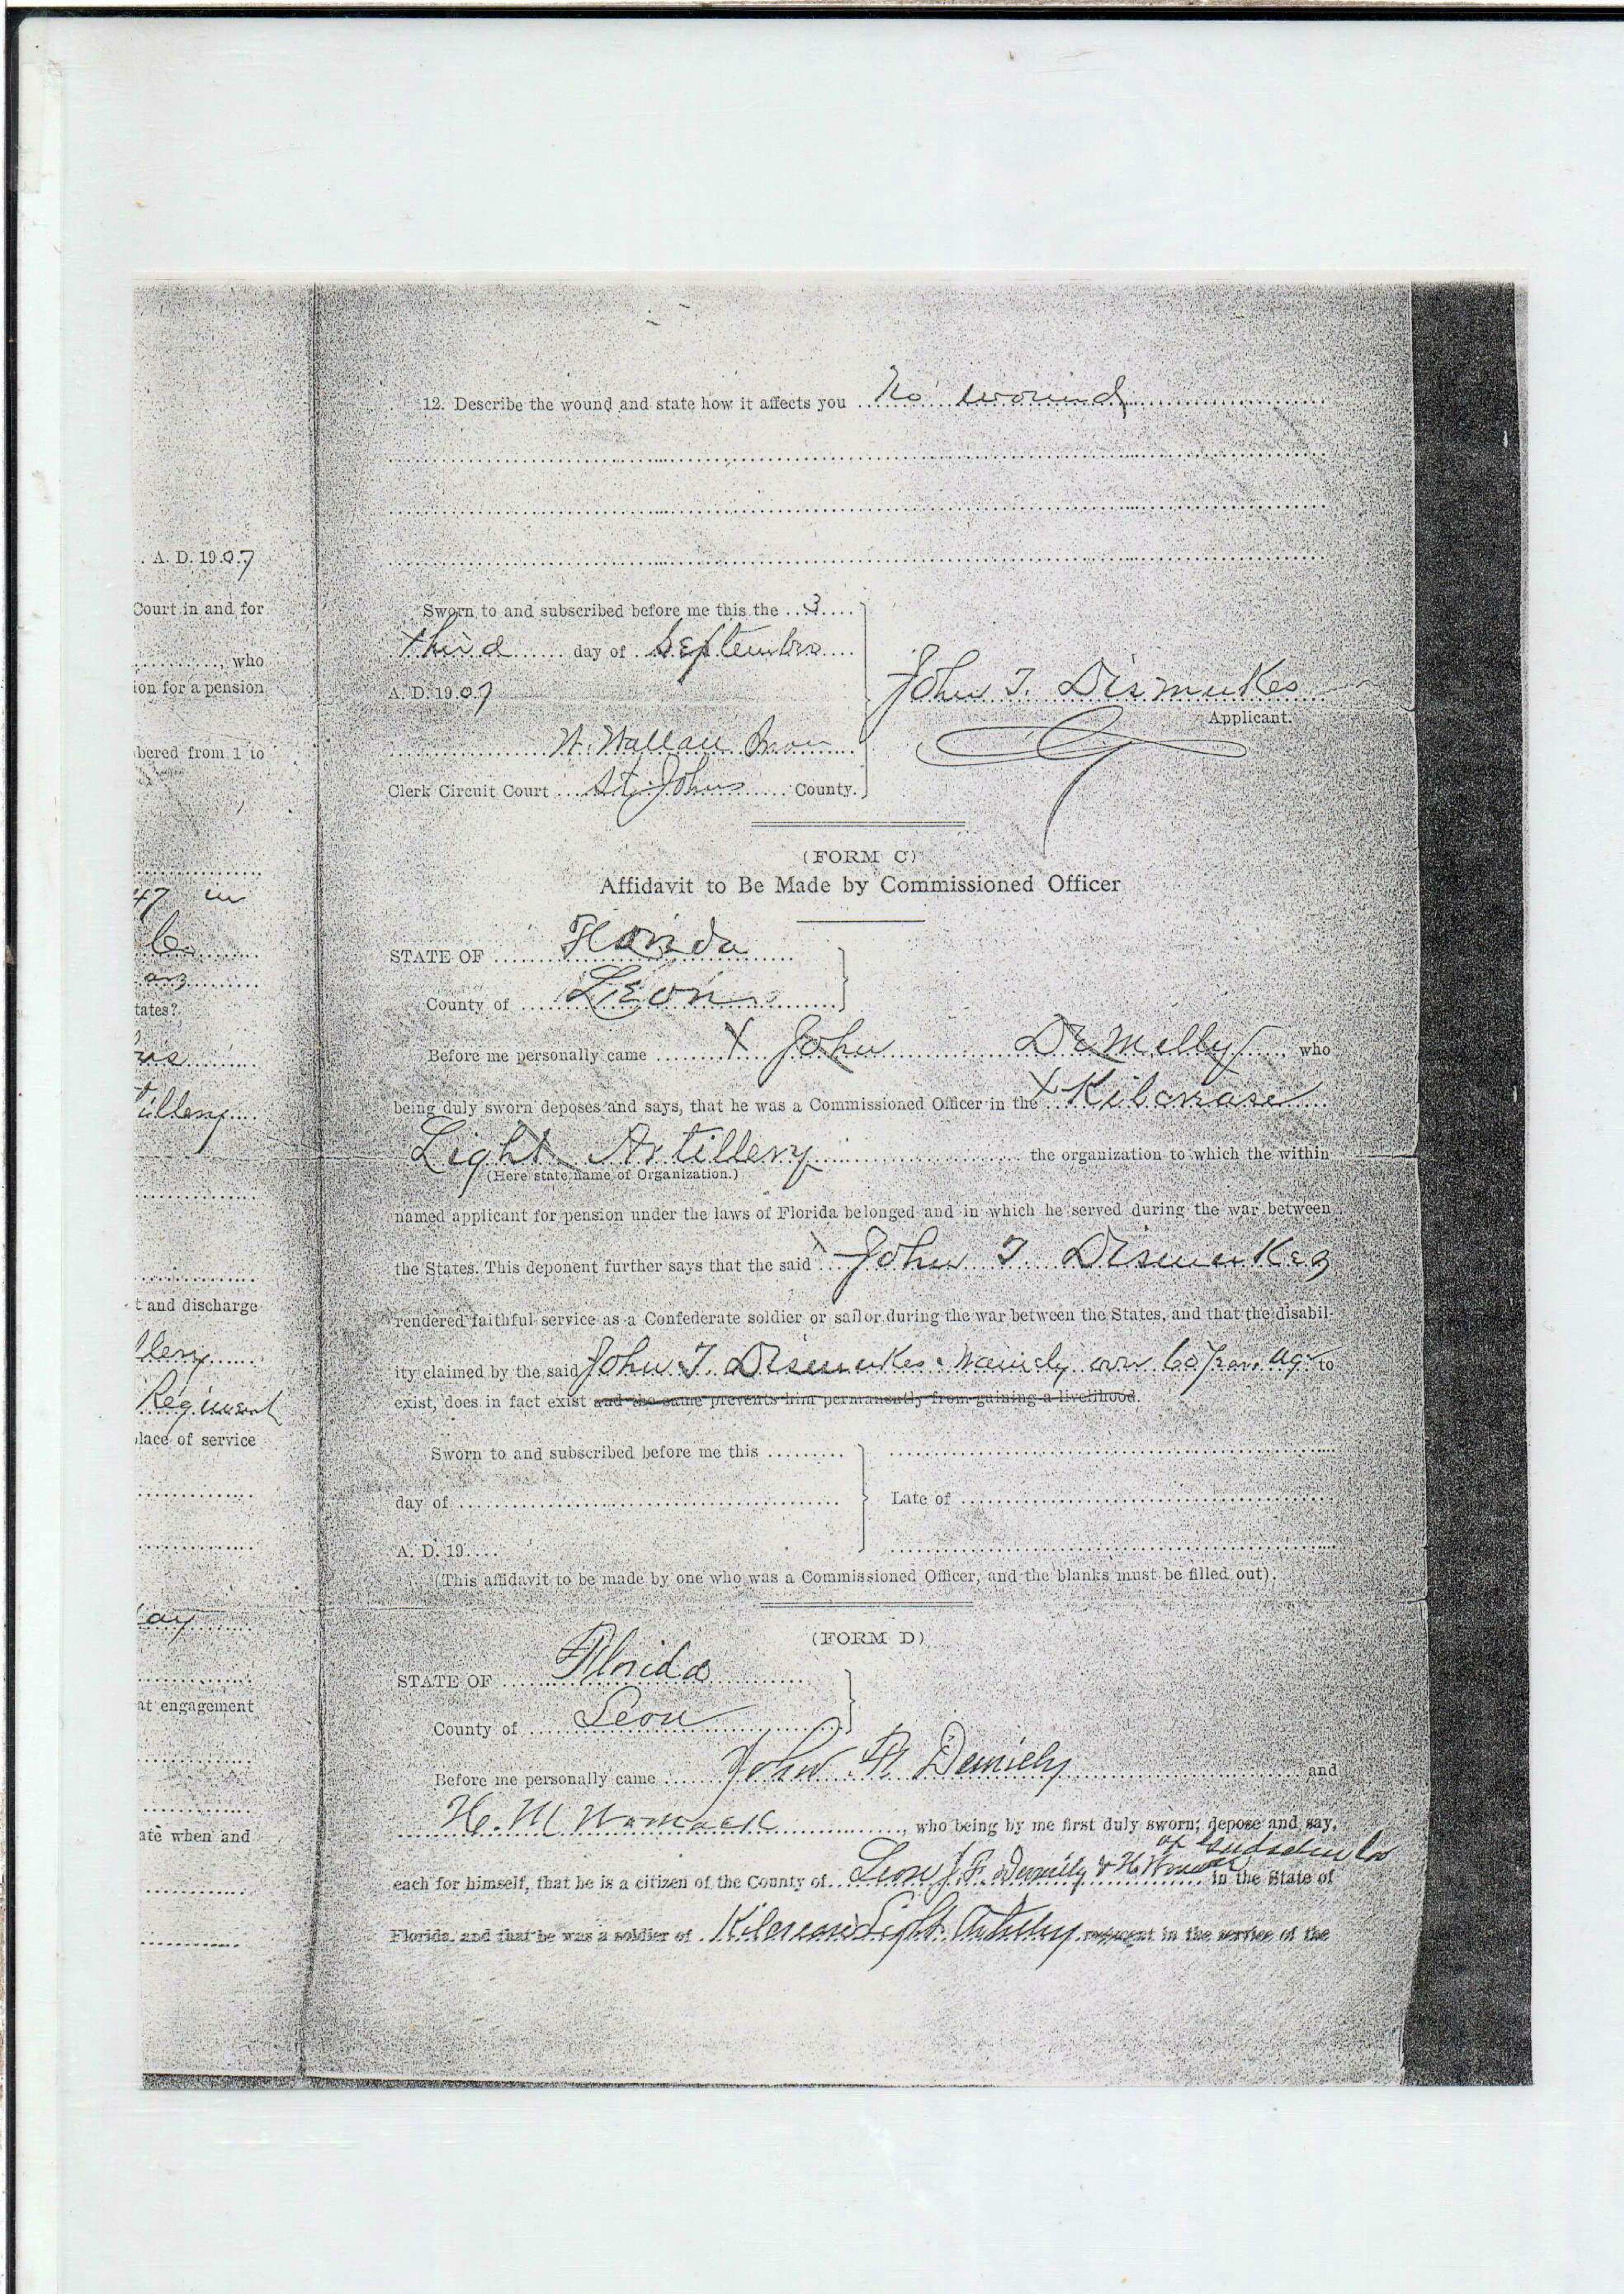 A. D. 1907
Court in and for
, who
ion for a pension
bered from 1 to
47 in
Co.
tates?
tillery
t and discharge
llery
Regiment
lace of service
ay
at engagement
ate when and
12. Describe the wound and state how it affects you No wound
Sworn to and subscribed before me this the 3
third day of September
A. D. 1907
John T. Dismukes
Applicant.
W. Wallace
Clerk Circuit Court St. Johns County.
(FORM C)
Affidavit to Be Made by Commissioned Officer
STATE OF Florida
County of Leon
Before me personally came X John DeMelly who
being duly sworn deposes and says, that he was a Commissioned Officer in the X Kilcrase
Light Artillery the organization to which the within
(Here state name of Organization.)
named applicant for pension under the laws of Florida belonged and in which he served during the war between
the States. This deponent further says that the said John T Dismukes
rendered faithful service as a Confederate soldier or sailor during the war between the States, and that the disabil-
ity claimed by the said John T. Dismukes. Namely over 60 years age to
exist, does in fact exist and the same prevents him permanently from gaining a livelihood.
Sworn to and subscribed before me this
day of
Late of
A. D. 19
(This affidavit to be made by one who was a Commissioned Officer, and the blanks must be filled out).
(FORM D)
STATE OF Florida
County of Leon
Before me personally came John F. Demilly and
H. M Womack, who being by me first duly sworn; depose and say,
of Gadsden Co
each for himself, that he is a citizen of the County of Leon J. F. Demilly & H. Womack in the State of
Florida, and that he was a soldier of Light Artillery regiment in the service of the